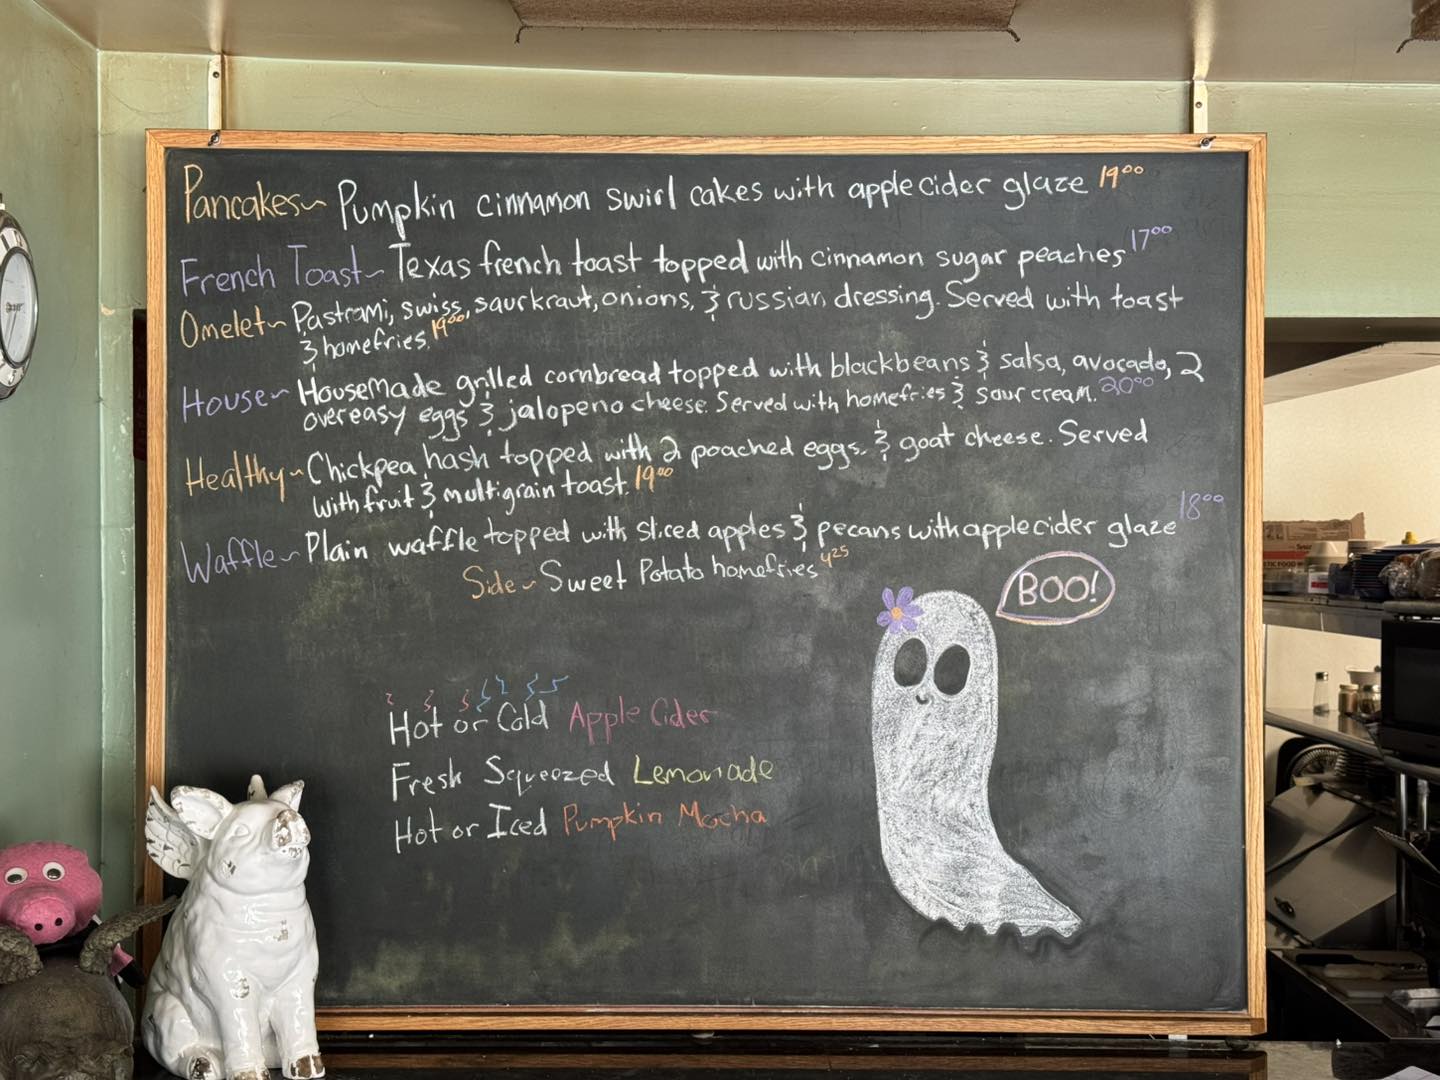 Pancakes~ Pumpkin cinnamon swirl cakes with apple cider glaze 19⁰⁰
French Toast~ Texas french toast topped with cinnamon sugar peaches 17⁰⁰
Omelet~ Pastrami, swiss, saurkraut, onions, & russian dressing. Served with toast
& homefries. 19⁰⁰
House~ Housemade grilled cornbread topped with blackbeans & salsa, avocado, 2
overeasy eggs & jalopeno cheese. Served with homefries & sour cream. 20⁰⁰
Healthy~ Chickpea hash topped with 2 poached eggs. & goat cheese. Served
with fruit & multigrain toast. 19⁰⁰
Waffle~ Plain waffle topped with sliced apples & pecans with apple cider glaze 18⁰⁰
Side~ Sweet Potato homefries 4²⁵
BOO!
Hot or Cold Apple Cider
Fresh Squeezed Lemonade
Hot or Iced Pumpkin Mocha